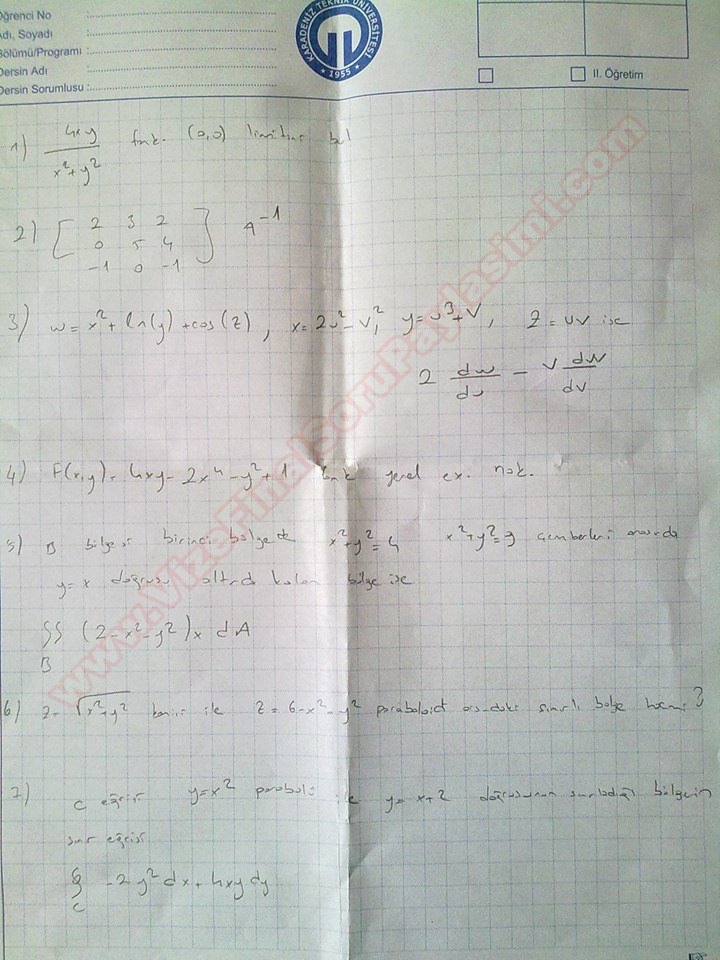 Öğrenci No :
Adı, Soyadı :
Bölümü/Programı :
Dersin Adı :
Dersin Sorumlusu :
KARADENİZ TEKNİK ÜNİVERSİTESİ
1955
II. Öğretim
1) 4xy / x²+y² fonk. (0,0) limitini bul
2) [ 2 3 2
0 5 4
-1 0 -1 ] A⁻¹
3) w = x² + ln(y) + cos(z), x = 2u² - v², y = u³ + v, z = uv ise
2 dw/du - v dw/dv
4) F(x,y) = 4xy - 2x⁴ - y² + 1 fonk yerel ex. nok.
5) B bölgesi birinci bölgede x²+y²=4 x²+y²=9 çemberleri arasında
y=x doğrusu altında kalan bölge ise
∫∫ (2-x²-y²)x dA
B
6) z = √x²+y² konisi ile z = 6-x²-y² paraboloid arasındaki sınırlı bölge hacmi?
7) C eğrisi y=x² parabolü ile y=x+2 doğrusunun sınırladığı bölgenin
sınır eğrisi
∮ -2y² dx + 4xy dy
C
www.VizeFinalSoruPaylasimi.com